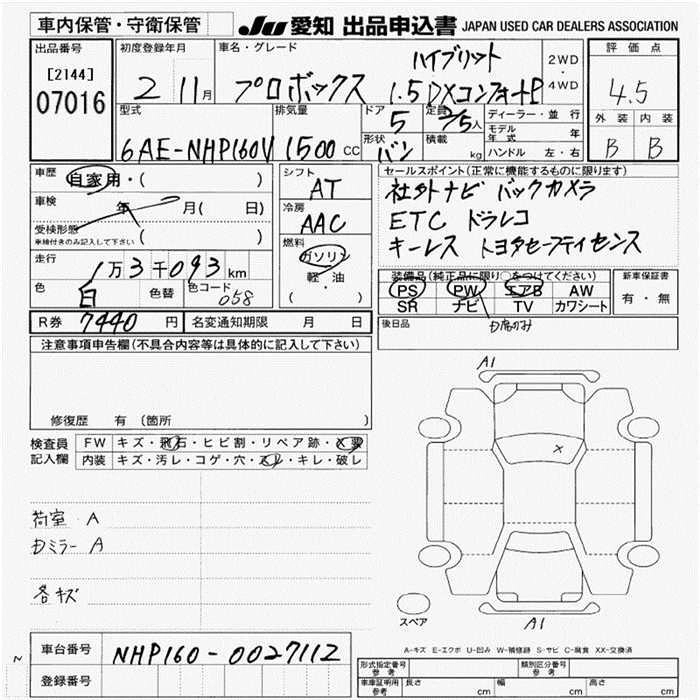 車内保管・守衛保管
JU 愛知 出品申込書 JAPAN USED CAR DEALERS ASSOCIATION
出品番号
[2144]
07016
初度登録年月
2 11月
車名・グレード
ハイブリット
プロボックス 1.5DXコンフォート
2WD
・
4WD
評価点
4.5
外装 内装
B B
型式
6AE-NHP160V
排気量
1500 CC
ドア
5
定員
2/5人
形状
バン
積載
kg
ディーラー・並行
モデル年式 年
ハンドル 左・右
車歴
自家用・( )
車検 年 月( 日)
受検形態
車検付きのみ記入して下さい ( )
走行
1万3千093km
色
白
色替
色コード
058
シフト
AT
冷房
AAC
燃料
ガソリン
軽・油
( )
セールスポイント(正常に機能するものに限ります)
社外ナビ バックカメラ
ETC ドラレコ
キーレス トヨタセーフティセンス
装備品(純正品に限り○をつけてください)
PS PW エアB AW
SR ナビ TV カワシート
新車保証書
有・無
R券 7440 円
名変通知期限 月 日
後日品
注意事項申告欄(不具合内容等は具体的に記入して下さい)
修復歴 有 (箇所 )
検査員記入欄
FW キズ・飛石・ヒビ割・リペア跡・X要
内装 キズ・汚レ・コゲ・穴・スレ・キレ・破レ
荷室 A
Dミラー A
各キズ
A1
×
スペア
A1
A-キズ E-エクボ U-凹み W-補修跡 S-サビ C-腐食 XX-交換済
車台番号 NHP160-0027112
登録番号
型式指定番号 参考
類別区分番号 参考
車庫証明用 参考 長さ cm 幅 cm 高さ cm